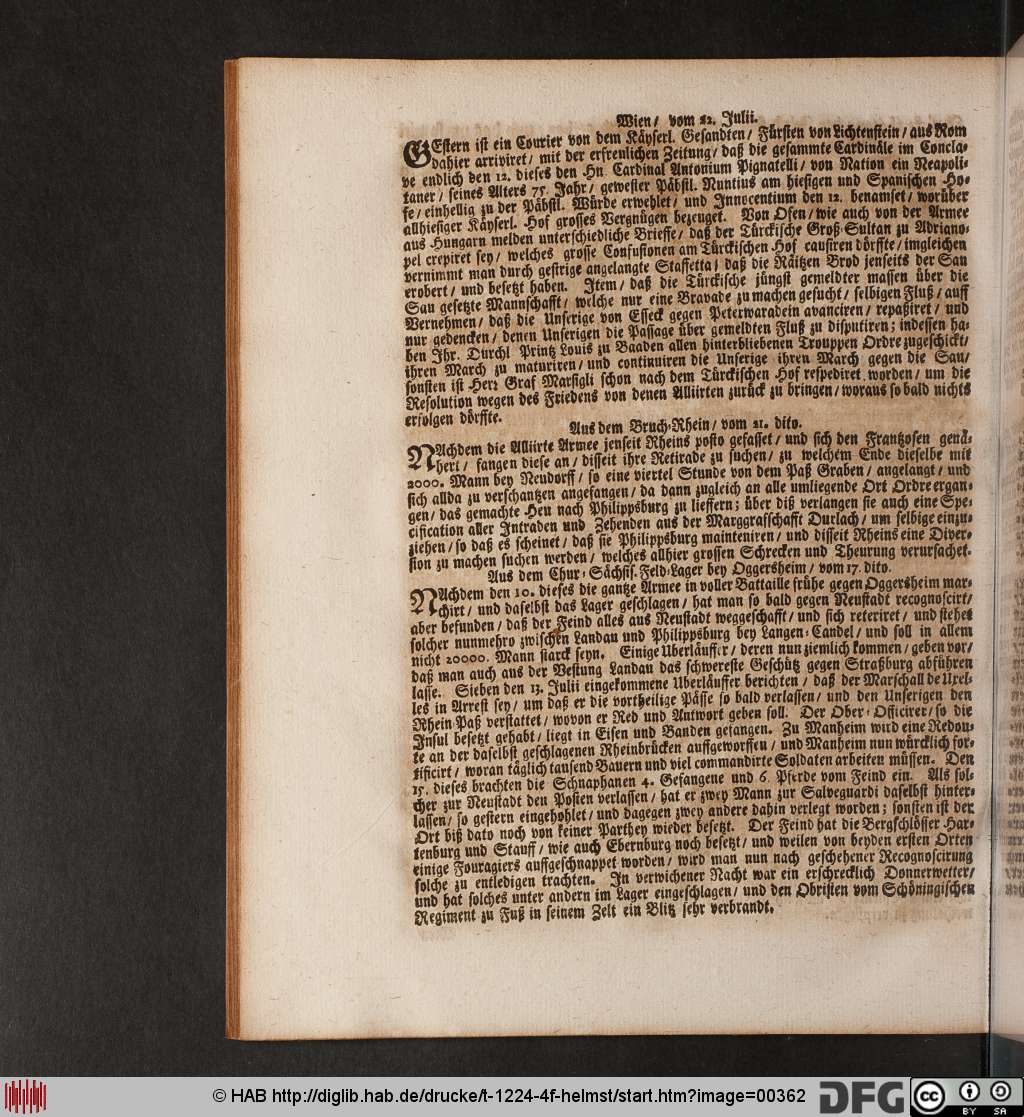 Wien/ vom 22. Julii.
GEstern ist ein Courier von dem Käyserl. Gesandten/ Fürsten von Lichtenstein/ aus Rom
dahier arriviret/ mit der erfreulichen Zeitung/ daß die gesammte Cardinäle im Concla-
ve endlich den 12. dieses den Hn. Cardinal Antonium Pignatelli/ von Nation ein Neapoli-
taner/ seines Alters 75. Jahr/ gewester Päbstl. Nuntius am hiesigen und Spanischen Ho-
fe/ einhellig zu der Päbstl. Würde erwehlet/ und Innocentium den 12. benamset/ worüber
allhiesiger Käyserl. Hof grosses Vergnügen bezeuget. Von Ofen/ wie auch von der Armee
aus Hungarn melden unterschiedliche Brieffe/ daß der Türckische Groß-Sultan zu Adriano-
pel crepiret sey/ welches grosse Confusionen am Türckischen Hof causiren dörffte/ imgleichen
vernimmt man durch gestrige angelangte Staffetta/ daß die Räitzen Brod jenseits der Sau
erobert/ und besetzt haben. Item/ daß die Türckische jüngst gemeldter massen über die
Sau gesetzte Mannschafft/ welche nur eine Bravade zu machen gesucht/ selbigen Fluß/ auff
Vernehmen/ daß die Unserige von Esseck gegen Peterwaradein avanciren/ repaßiret/ und
nur gedencken/ denen Unserigen die Passage über gemeldten Fluß zu disputiren; indessen ha-
ben Ihr. Durchl. Printz Louis zu Baaden allen hinterbliebenen Trouppen Ordre zugeschickt/
ihren March zu maturiren/ und continuiren die Unserige ihren March gegen die Sau/
sonsten ist Herr Graf Marsigli schon nach dem Türckischen Hof respediret worden/ um die
Resolution wegen des Friedens von denen Alliirten zurück zu bringen/ woraus so bald nichts
erfolgen dörffte.
Aus dem Bruch-Rhein/ vom 21. dito.
NAchdem die Alliirte Armee jenseit Rheins posto gefasset/ und sich den Frantzosen genä-
hert/ fangen diese an/ disseit ihre Retirade zu suchen/ zu welchem Ende dieselbe mit
2000. Mann bey Neudorff/ so eine viertel Stunde von dem Paß Graben/ angelangt/ und
sich allda zu verschantzen angefangen/ da dann zugleich an alle umliegende Ort Ordre ergan-
gen/ das gemachte Heu nach Philippsburg zu lieffern; über diß verlangen sie auch eine Spe-
cification aller Intraden und Zehenden aus der Marggrafschafft Durlach/ um selbige einzu-
ziehen/ so daß es scheinet/ daß sie Philippsburg mainteniren/ und disseit Rheins eine Diver-
sion zu machen suchen werden/ welches allhier grossen Schrecken und Theurung verursachet.
Aus dem Chur-Sächsis. Feld-Lager bey Oggersheim/ vom 17. dito.
NAchdem den 10. dieses die gantze Armee in voller Battaille frühe gegen Oggersheim mar-
chirt/ und daselbst das Lager geschlagen/ hat man so bald gegen Neustadt recognoscirt/
aber befunden/ daß der Feind alles aus Neustadt weggeschafft/ und sich reteriret/ und stehet
solcher nunmehro zwischen Landau und Philippsburg bey Langen-Candel/ und soll in allem
nicht 20000. Mann starck seyn. Einige Uberläuffer/ deren nun ziemlich kommen/ geben vor/
daß man auch aus der Vestung Landau das schwereste Geschütz gegen Straßburg abführen
lasse. Sieben den 13. Julii eingekommene Uberläuffer berichten/ daß der Marschall de Uxel-
les in Arrest sey/ um daß er die vortheilige Pässe so bald verlassen/ und den Unserigen den
Rhein-Paß verstattet/ wovon er Red und Antwort geben soll. Der Ober-Officirer/ so die
Insul besetzt gehabt/ liegt in Eisen und Banden gefangen. Zu Manheim wird eine Redou-
te an der daselbst geschlagenen Rheinbrücken auffgeworffen/ und Manheim nun würcklich for-
tificirt/ woran täglich tausend Bauern und viel commandirte Soldaten arbeiten müssen. Den
15. dieses brachten die Schnaphanen 4. Gefangene und 6. Pferde vom Feind ein. Als sol-
cher zur Neustadt den Posten verlassen/ hat er zwey Mann zur Salveguardi daselbst hinter-
lassen/ so gestern eingehohlet/ und dagegen zwey andere dahin verlegt worden; sonsten ist der
Ort biß dato noch von keiner Parthey wieder besetzt. Der Feind hat die Bergschlösser Har-
tenburg und Stauff/ wie auch Ebernburg noch besetzt/ und weilen von beyden ersten Orten
einige Fouragiers auffgeschnappet worden/ wird man nun nach geschehener Recognoscirung
solche zu entledigen trachten. In verwichener Nacht war ein erschrecklich Donnerwetter/
und hat solches unter andern im Lager eingeschlagen/ und den Obristen vom Schöningischen
Regiment zu Fuß in seinem Zelt ein Blitz sehr verbrandt.
© HAB http://diglib.hab.de/drucke/t-1224-4f-helmst/start.htm?image=00362
DFG
cc
BY SA